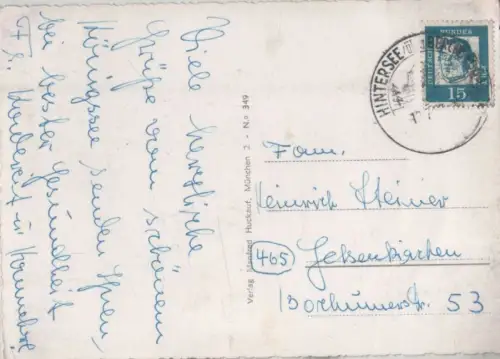 Viele herzliche
Grüße vom schönem
Königssee senden Ihnen
bei bester Gesundheit
F
Verlag Manfred Huckauf, München 2 - N.º 349
HINTERSEE
DEUTSCHE
BUNDESPOST
15
Fam.
Heinrich Steiner
(465) Gelsenkirchen
Bochumerstr. 53